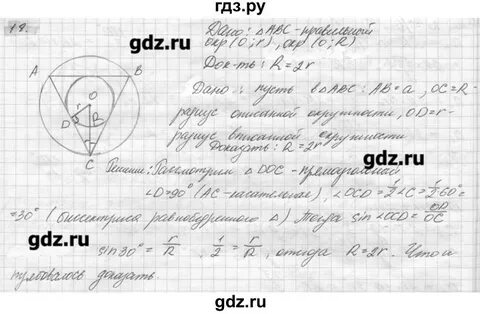 гдз.ру
19.
Дано: △ABC - правильный
окр (O; r), окр (O; R)
Док-ть: R = 2r
Дано: пусть в △ABC: AB = a, OC = R -
радиус описанной окружности, OD = r -
радиус вписанной окружности
Доказать: R = 2r
A
B
O
D
r
R
C
Решение: Рассмотрим △DOC - прямоугольный
∠D = 90° (AC - касательная), ∠OCD = 1/2 ∠C = 1/2 60° =
= 30° (биссектриса равнобедренного △) Тогда sin ∠OCD = OD/OC
sin 30° = r/R, 1/2 = r/R, откуда R = 2r. Что и
требовалось доказать.
gdz.ru
gdz.ru
gdz.ru
gdz.ru
gdz.ru
gdz.ru